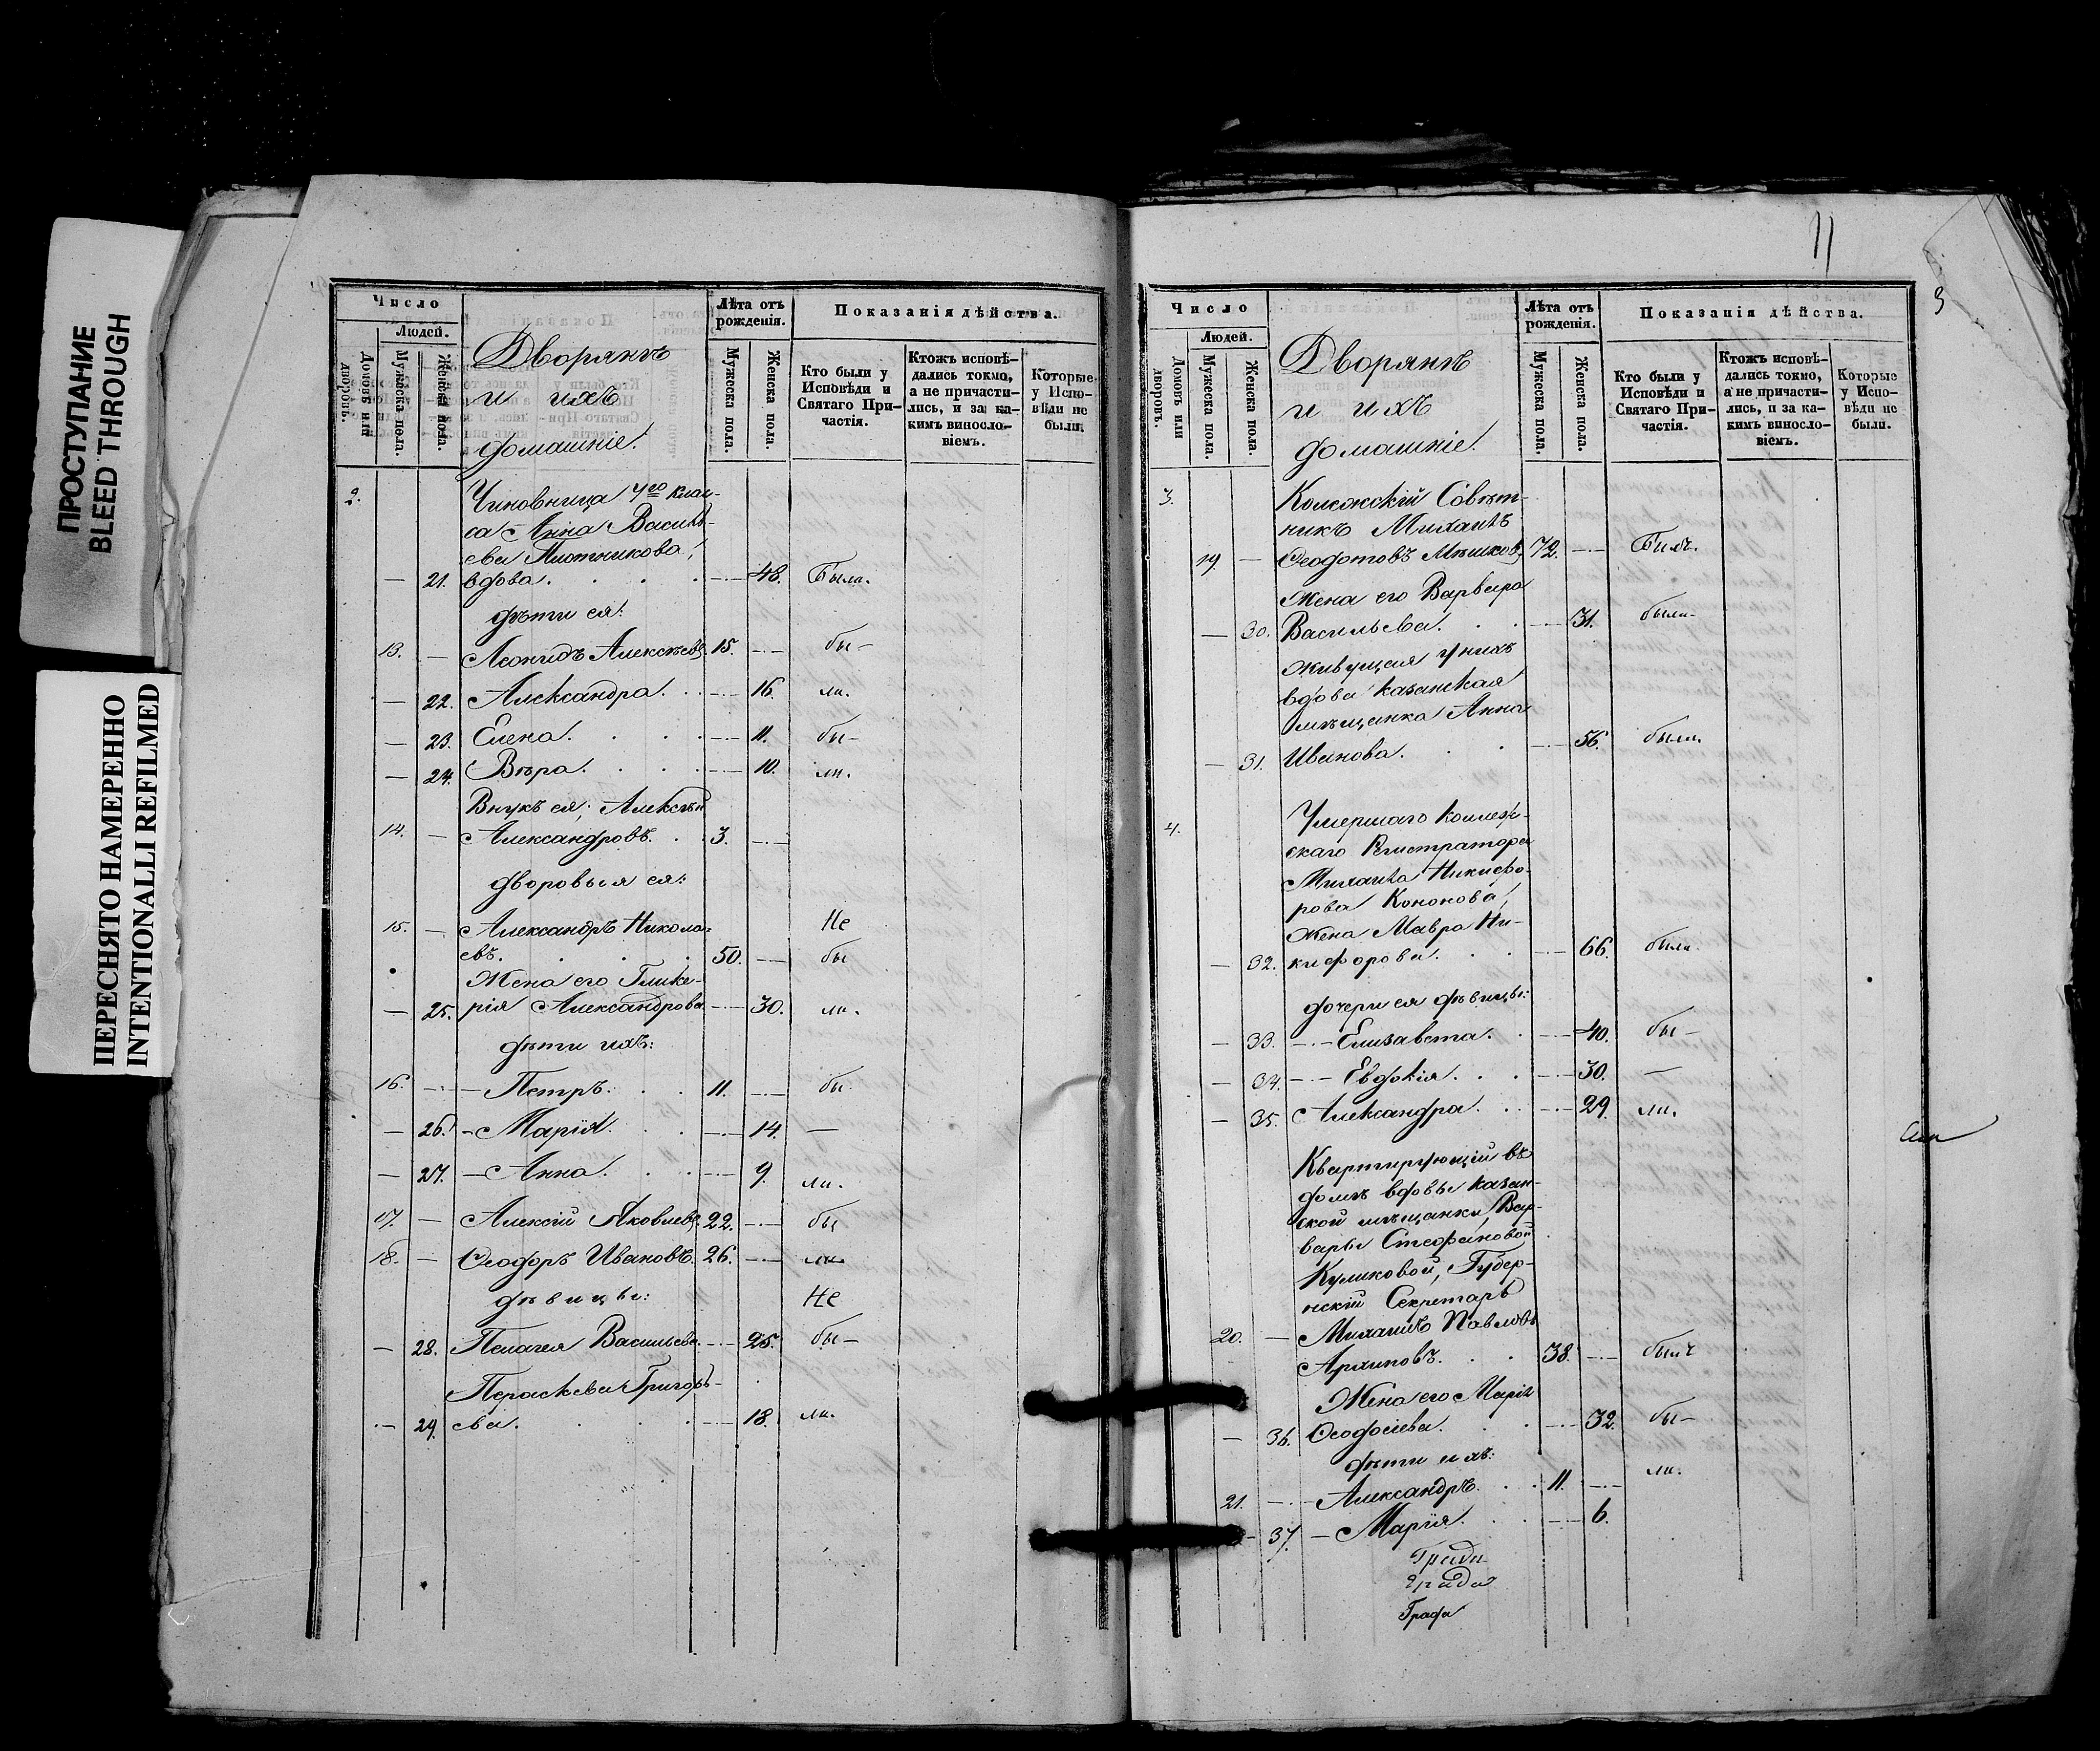 ПРОСТУПАНИЕ
BLEED THROUGH
ПЕРЕСНЯТО НАМЕРЕННО
INTENTIONALLI REFILMED
Число
Людей.
Домовъ или дворовъ.
Мужеска пола.
Женска пола.
Дворянъ
и ихъ
домашніе.
Лѣта отъ
рожденія.
Мужеска пола.
Женска пола.
Показанія дѣйства.
Кто были у
Исповѣди и
Святаго При-
частія.
Ктожъ исповѣ-
дались токмо,
а не причасти-
лись, и за ка-
кимъ виносло-
віемъ.
Которые
у Испо-
вѣди не
были.
2. Чиновница 7го клас-
са Анна Василь-
ева Плотникова,
— 21. вдова. — 48. Была.
дѣти ея:
13. — Леонидъ Алексѣевъ. 15. — бы-
— 22. Александра. — 16. ли.
— 23. Елена. — 11. бы-
— 24. Вѣра. — 10. ли.
Внукъ ея, Алексѣй
14. — Александровъ. 3. —
дворовыя ея:
15. — Александръ Никола= Не
евъ. 50. — бы
Жена его Глике-
— 25. рія Александрова — 30. ли.
дѣти ихъ:
16. — Петръ. 11. — бы
— 26. Марія. — 14. —
— 27. Анна. — 9. ли.
17. — Алексій Яковлевъ. 22. — бы
18. — Ѳеодоръ Ивановъ. 26. — ли
дѣвицы: Не
— 28. Пелагея Васильева. — 25. бы-
Параскева Григорь-
— 29. ева. — 18. ли.
11
3
Число
Людей.
Домовъ или дворовъ.
Мужеска пола.
Женска пола.
Дворянъ
и ихъ
домашніе.
Лѣта отъ
рожденія.
Мужеска пола.
Женска пола.
Показанія дѣйства.
Кто были у
Исповѣди и
Святаго При-
частія.
Ктожъ исповѣ-
дались токмо,
а не причасти-
лись, и за ка-
кимъ виносло-
віемъ.
Которые
у Испо-
вѣди не
были.
3. Колежскій Совѣт-
никъ Михаилъ
19. — Ѳеодотовъ Мѣшковъ, 72. — Былъ.
Жена его Варвара
— 30. Васильева. — 31. была
Живущая у нихъ
вдова казанская
мѣщанка Анна
— 31. Иванова. — 56. была.
4. Умершаго Коллеж-
скаго Регистратора
Михаила Никифо-
рова Кононова,
жена Мавра Ни-
— 32. кифорова. — 66. была.
дочери ея дѣвицы:
— 33. — Елизавета. — 40. бы-
— 34. — Евдокія. — 30. —
— 35. Александра. — 29. ли.
Квартирующій въ
домѣ вдовы казан-
ской мѣщанки, Вар-
вары Стефановой
Куликовой, Губер-
нскій Секретарь
20. — Михаилъ Павловъ
Архиповъ. 38. — былъ
Жена его Марія
— 36. Ѳеодосіева. — 32. бы-
дѣти ихъ: ли.
21. — Александръ. 11. —
— 37. — Марія. — 6.
Графа